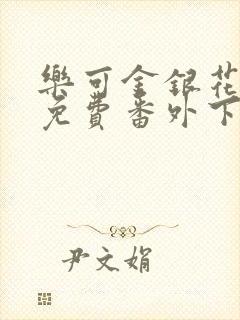 樂可金銀花
免費番外下
尹文娟